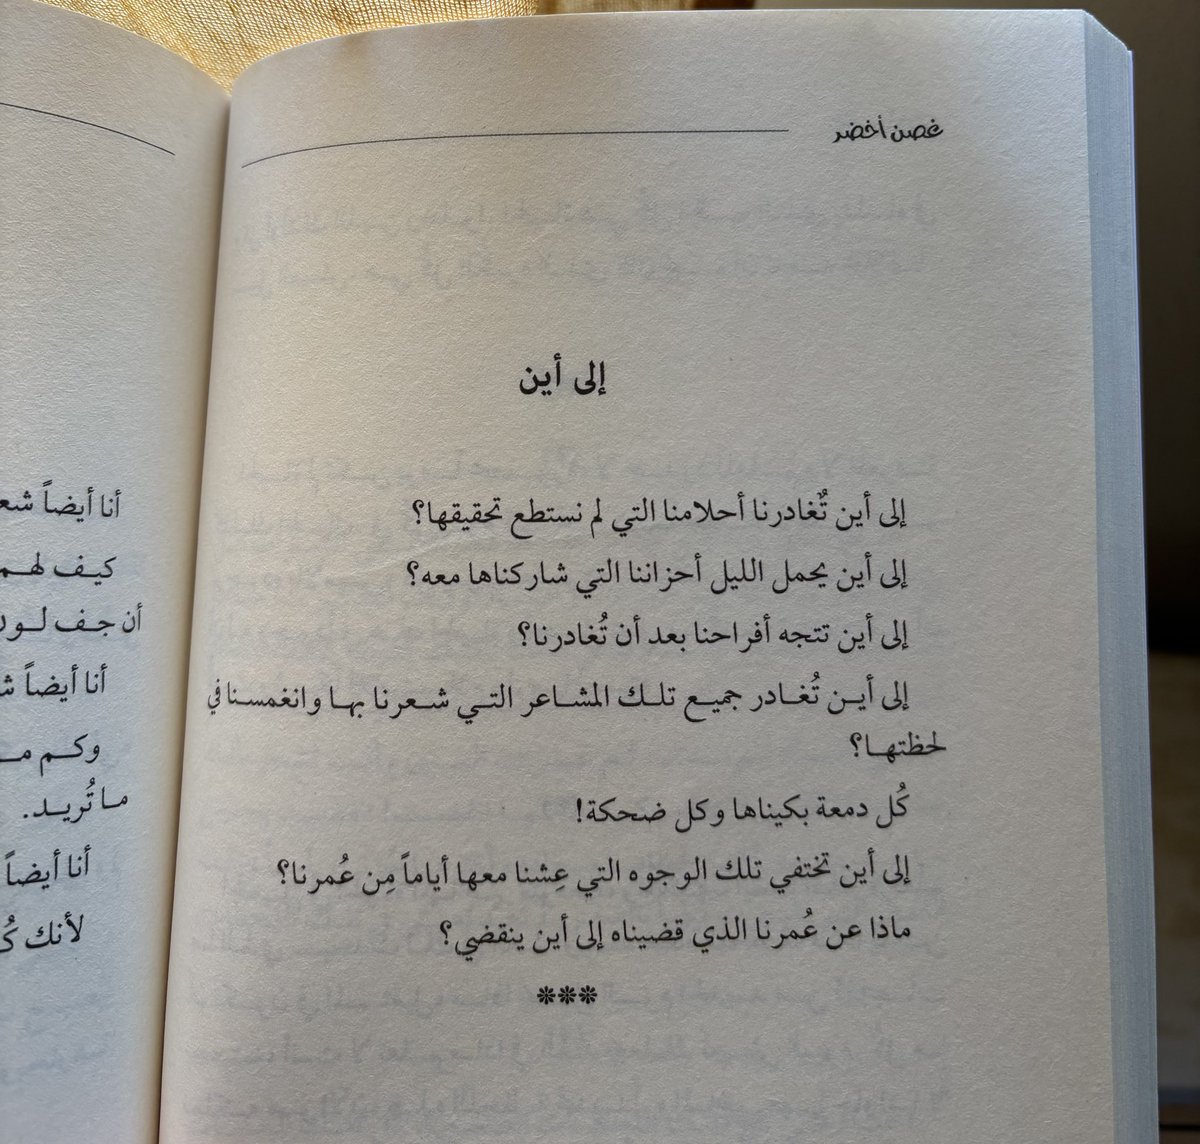 غصن أخضر
إلى أين
إلى أين تٌغادرنا أحلامنا التي لم نستطع تحقيقها؟
إلى أين يحمل الليل أحزاننا التي شاركناها معه؟
إلى أين تتجه أفراحنا بعد أن تُغادرنا؟
إلى أيـن تُغـادر جميـع تلـك المشـاعر التـي شـعرنا بهـا وانغمسـنا في
لحظتهـا؟
كُل دمعة بكيناها وكل ضحكة!
إلى أين تختفي تلك الوجوه التي عِشنا معها أياماً مِن عُمرنا؟
ماذا عن عُمرنا الذي قضيناه إلى أين ينقضي؟
***
أنا أيضاً
كيـف لهـم
أن جـف لـون
أنا أيضاً
وكـم
مـا تُريـد.
أنا أيضاً
لأنك